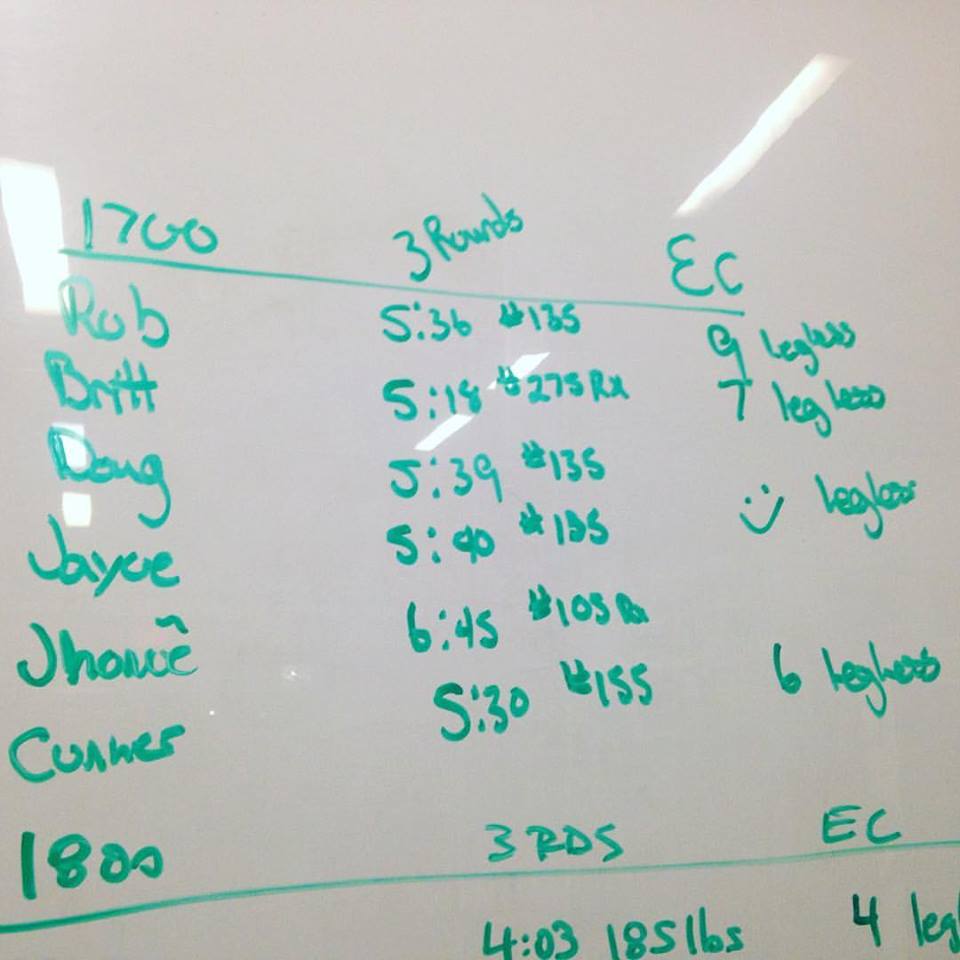 1700 3 Rounds EC
Rob 5:36 #135 9 legless
Britt 5:18 #275 Rx 7 legless
Doug 5:39 #135 legless
Jayce 5:40 #135
6:45 #105 Rx
Conner 5:30 #155 6 legless
1800 3 RDS EC
4:03 185 lbs 4 leg